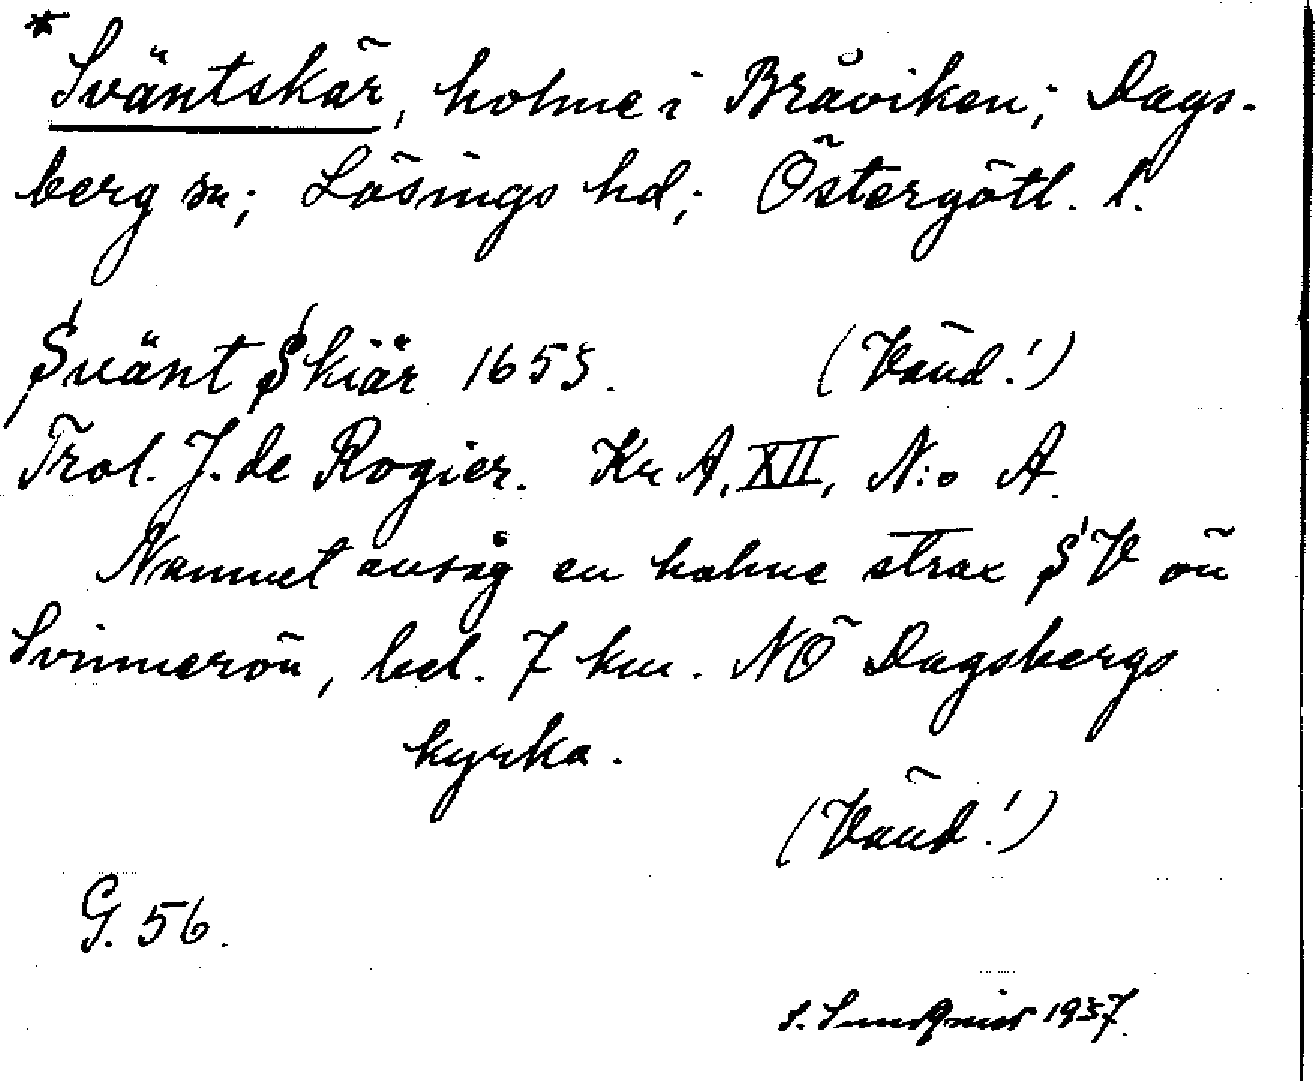 * Sväntskär, holme i Bråviken; Dags-
berg sn; Lösings hd; Östergötl. l.
Svänt Skiär 1655. (Vänd!)
Trol. J. de Rogier. Kr A, XII, N:o A.
Namnet avsåg en holme strax SV ön
Svinnerön, bel. 7 km. NÖ Dagsbergs
kyrka.
(Vänd!)
G. 56.
S. Sundqvist 1937.